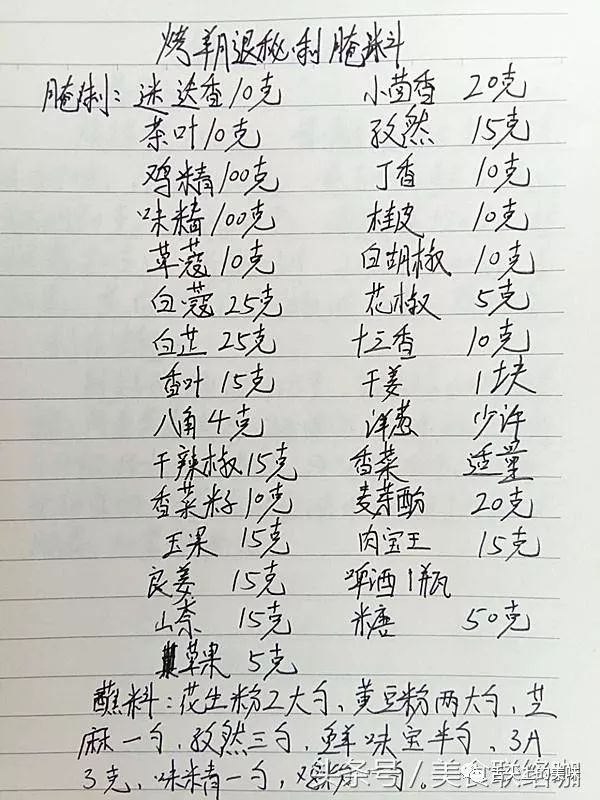 烤羊退秘制腌料
腌制：迷迭香10克 小茴香 20克
茶叶10克 孜然 15克
鸡精100克 丁香 10克
味精100克 桂皮 10克
草蔻10克 白胡椒 10克
白蔻25克 花椒 5克
白芷25克 十三香 10克
香叶15克 干姜 1块
八角4克 洋葱 少许
干辣椒15克 香菜 适量
香菜籽10克 麦芽酚 20克
玉果 15克 肉宝王 15克
良姜 15克 啤酒1瓶
山柰 15克 糖 50克
草果 5克
蘸料：花生粉2大勺，黄豆粉两大勺，芝
麻一勺，孜然三勺，鲜味宝半勺，3A
3克，味精一勺，鸡粉一勺。
头条号/美食联络咖